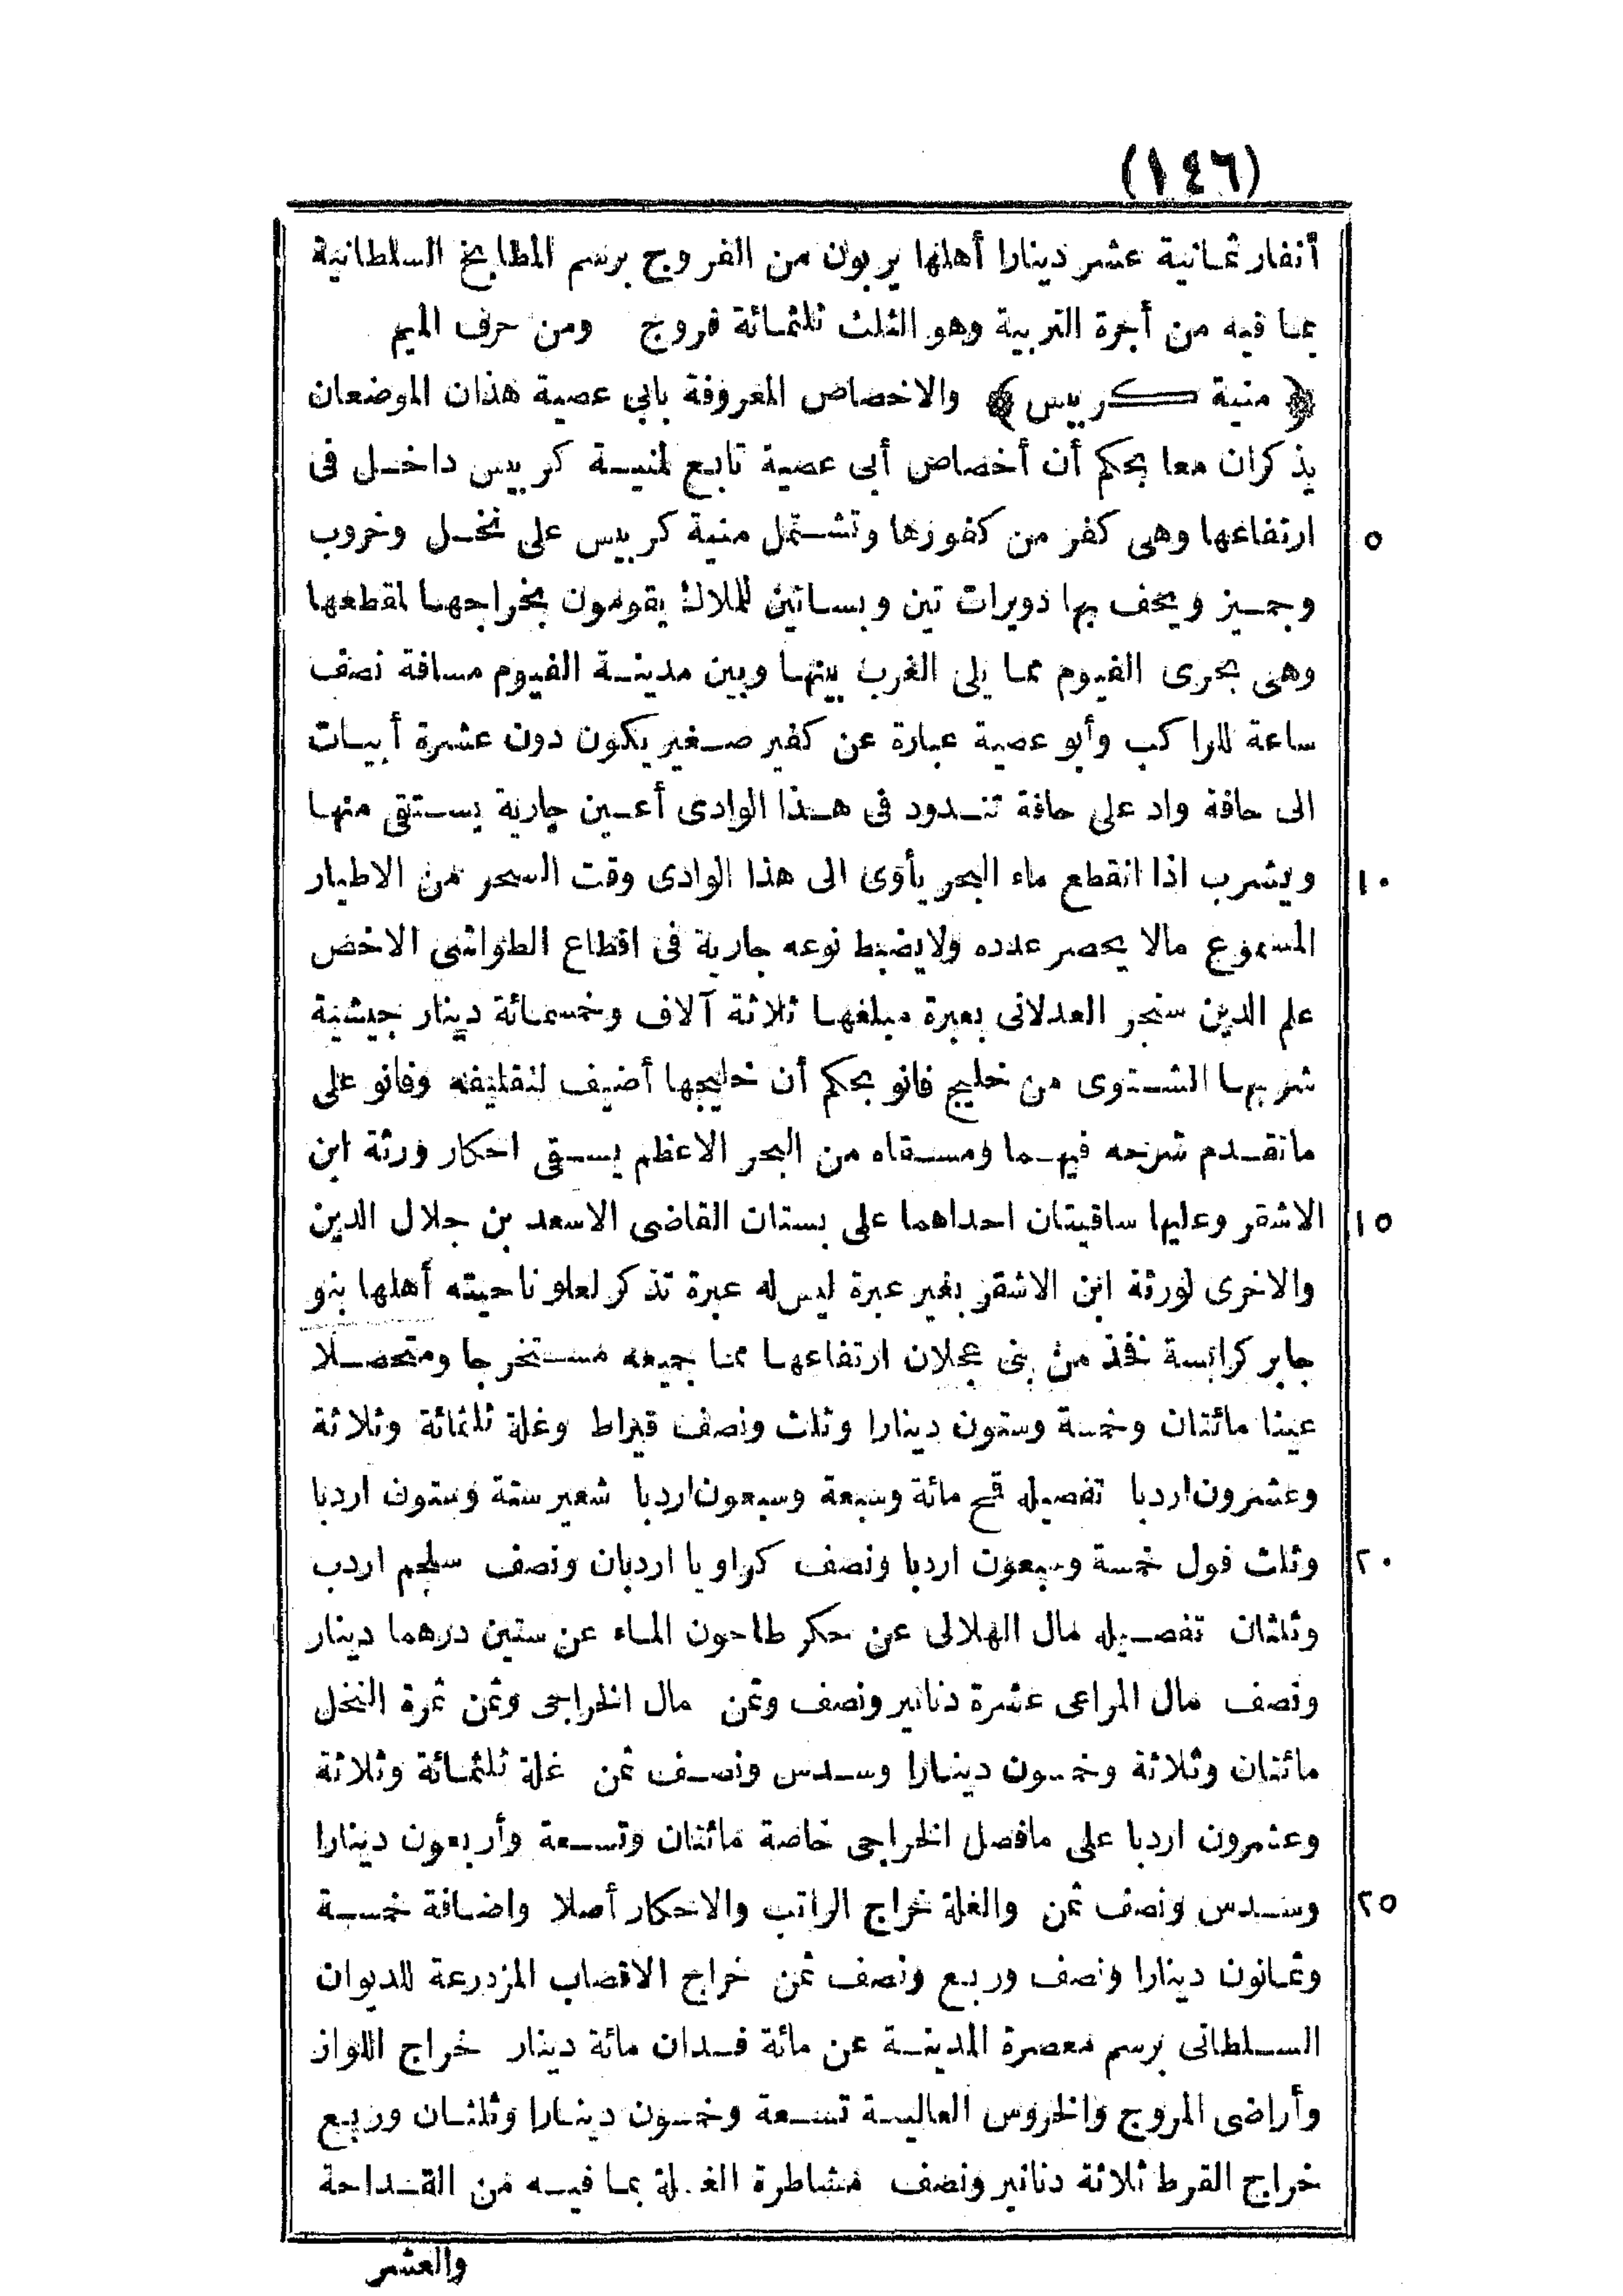 (١٤٦)
أنفار ثمانية عشر دينارا أهلها يربون من الفروج برسم المطابخ السلطانية
بما فيه من أجرة التربية وهو الثلث ثلثمائة فروج ومن حرف الميم
﴿ منية كربيس ﴾ والاخصاص المعروفة بابى عصية هذان الموضعان
يذكران معا بحكم أن أخصاص أبى عصية تابع لمنية كربيس داخل فى
ارتفاعها وهى كفر من كفورها وتشتمل منية كربيس على نخل وخروب ٥
وجميز ويحف بها دويرات تين وبساتين للملاك يقومون بخراجها لمقطعها
وهى بحرى الفيوم مما يلى الغرب بينها وبين مدينة الفيوم مسافة نصف
ساعة للراكب وأبو عصية عبارة عن كفير صغير يكون دون عشرة أبيات
الى حافة واد على حافة تندود فى هذا الوادى أعين جارية يستقى منها
ويشرب اذا انقطع ماء البحر يأوى الى هذا الوادى وقت السحر من الاطيار ١٠
المسموع مالا يحصر عدده ولايضبط نوعه جارية فى اقطاع الطواشى الاخص
علم الدين سنجر العدلانى بعبرة مبلغها ثلاثة آلاف وخمسمائة دينار جيشية
شربها الشتوى من خليج فانو بحكم أن خليجها أضيف لنقليفه وفانو على
ماتقدم شرحه فيهما ومسقاه من البحر الاعظم يسقى احكار ورثة ابن
الاشقر وعليها ساقيتان احداهما على بستان القاضى الاسعد بن جلال الدين ١٥
والاخرى لورثة ابن الاشقر بغير عبرة ليس له عبرة تذكر لعلو ناحيته أهلها بنو
جابر كرابسة فخذ من بنى عجلان ارتفاعها مما جميعه مستخرجا ومتحصلا
عينا مائتان وخمسة وستون دينارا وثلث ونصف قيراط وغلة ثلثمائة وثلاثة
وعشرون اردبا تفصيله قمح مائة وسبعة وسبعون اردبا شعير ستة وستون اردبا
وثلث فول خمسة وسبعون اردبا ونصف كراويا اردبان ونصف سلجم اردب ٢٠
وثلثان تفصيله مال الهلالى عن حكر طاحون الماء عن ستين درهما دينار
ونصف مال المراعى عشرة دنانير ونصف وثمن مال الخراجى وثمن ثمرة النخل
مائتان وثلاثة وخمسون دينارا وسدس ونصف ثمن غلة ثلثمائة وثلاثة
وعشرون اردبا على مافصل الخراجى خاصة مائتان وتسعة وأربعون دينارا
وسدس ونصف ثمن والغلة خراج الراتب والاحكار أصلا واضافة خمسة ٢٥
وثمانون دينارا ونصف وربع ونصف ثمن خراج الاقصاب المزدرعة للديوان
السلطانى برسم معصرة المدينة عن مائة فدان مائة دينار خراج اللواز
وأراضى المروج والخروس العالية تسعة وخمسون دينارا وثلثان وربع
خراج القرط ثلاثة دنانير ونصف مشاطرة الغلة بما فيه من القداحة
والعشر